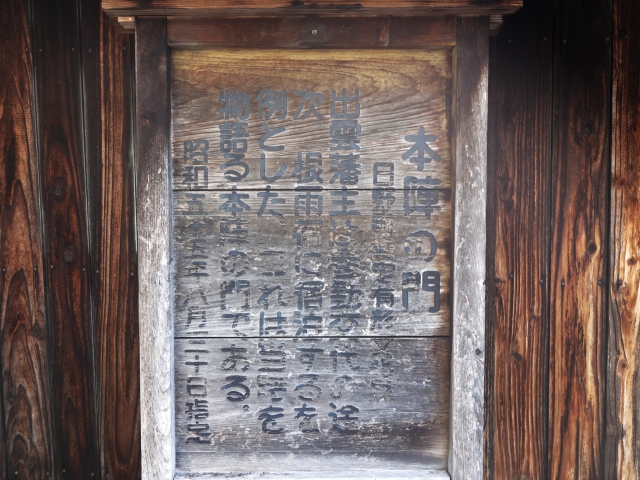 本陣の門
日野町指定有形文化財
出雲藩主は参勤交代の途
次、根雨宿に宿泊するを
例とした。これは当時を
物語る本陣の門である。
昭和五十五年八月二十日指定